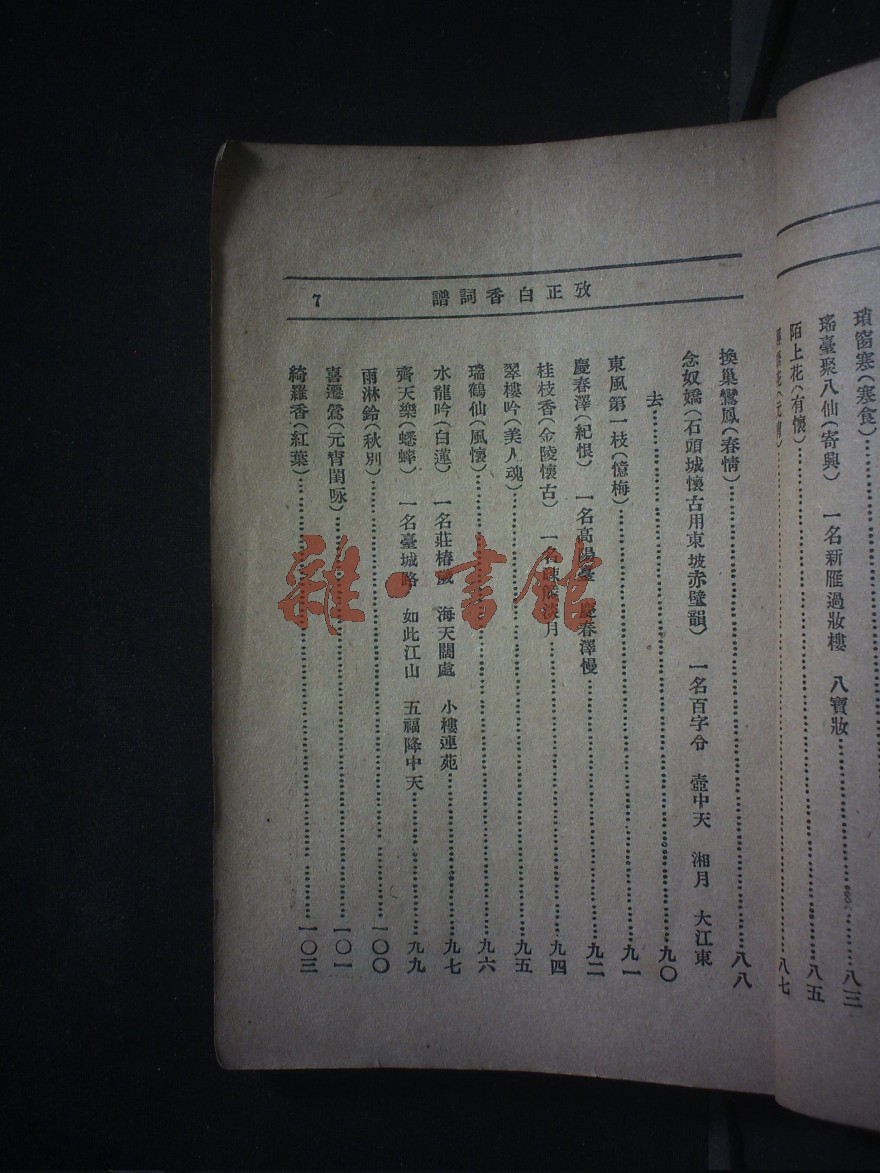 瑣窗寒（寒食）……八三
瑤臺聚八仙（寄興）　一名新雁過妝樓　八寶妝……八五
陌上花（有懷）
八七
攷正白香詞譜　7
換巢鸞鳳（春情）……八八
念奴嬌（石頭城懷古用東坡赤壁韻）　一名百字令　壺中天　湘月　大江東
去……九〇
東風第一枝（憶梅）……九一
慶春澤（紀恨）　一名高陽臺　慶春澤慢……九二
桂枝香（金陵懷古）　一名疎簾淡月……九四
翠樓吟（美人魂）……九五
瑞鶴仙（風懷）……九六
水龍吟（白蓮）　一名莊椿歲　海天闊處　小樓連苑……九七
齊天樂（蟋蟀）　一名臺城路　如此江山　五福降中天……九九
雨淋鈴（秋別）……一〇〇
喜遷鶯（元宵閨咏）……一〇一
綺羅香（紅葉）……一〇三
雜·書館